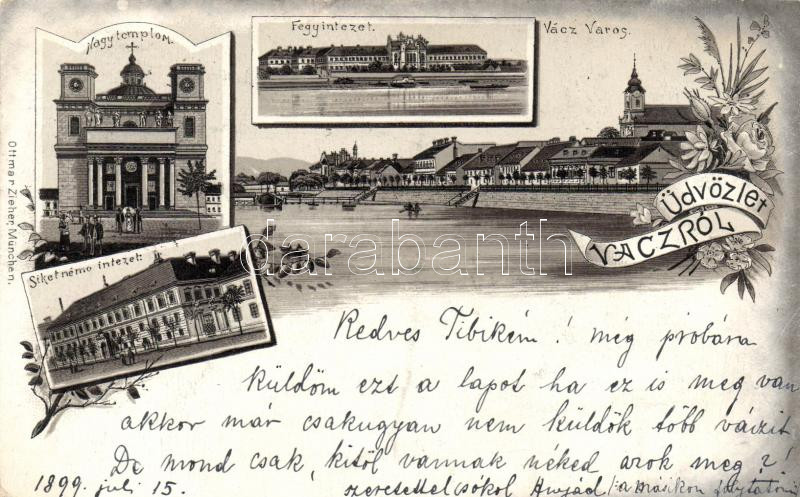 Nagytemplom.
Fegyintezet.
Vácz Varos.
Siketnémo intezet.
Üdvözlet
VACZRÓL
Ottmar Zieher, München.
darabanth.com
Kedves Tibikém! még próbára
küldöm ezt a lapot ha ez is meg van
akkor már csakugyan nem küldök több váczit
De mond csak, kitöl vannak néked azok meg?!
1899. juli 15. szeretettel csókol /a másikon